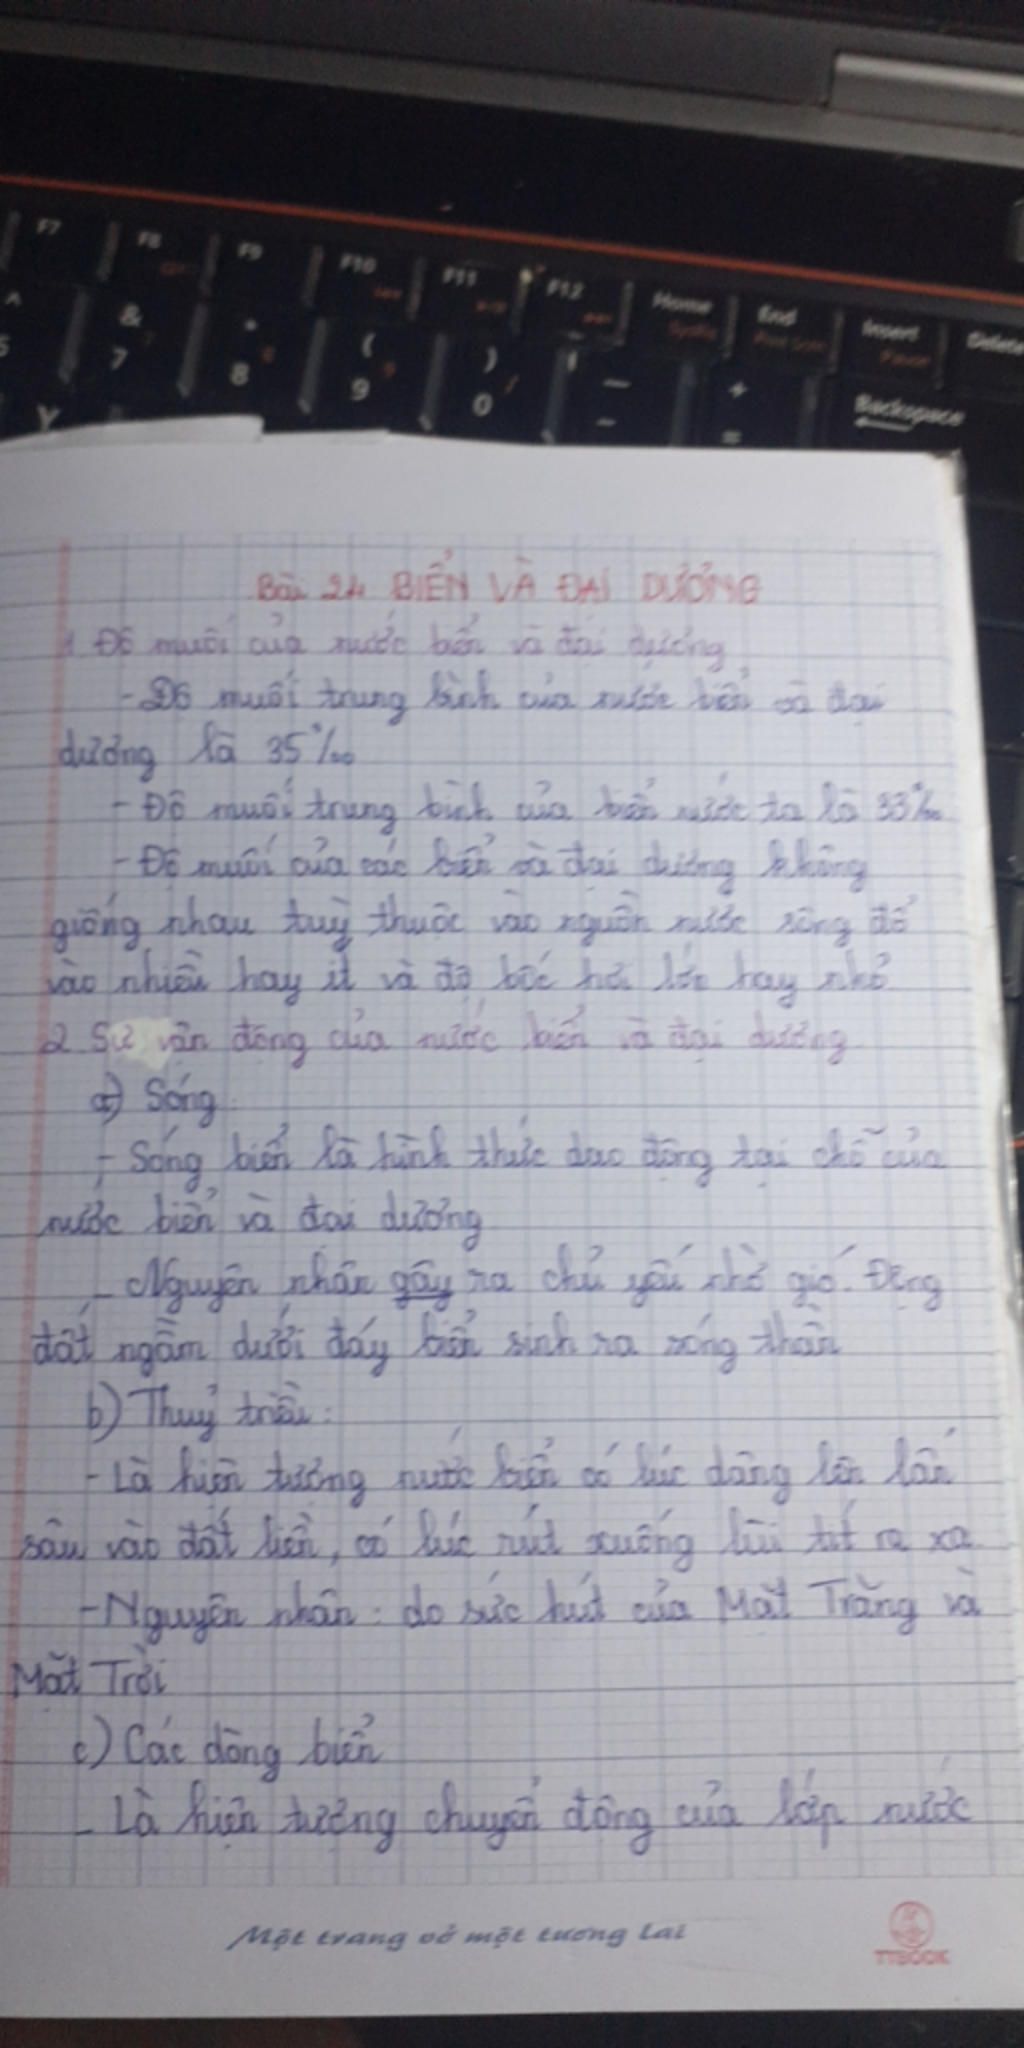 F7 F8 F9 F10 F11 F12 Home End Insert Delete
& 7 * 8 ( 9 ) 0 Backspace
Y
Bài 24 BIỂN VÀ ĐẠI DƯƠNG
1. Độ muối của nước biển và đại dương
- Độ muối trung bình của nước biển và đại
dương là 35‰
- Độ muối trung bình của biển nước ta là 33‰
- Độ muối của các biển và đại dương không
giống nhau tuỳ thuộc vào nguồn nước sông đổ
vào nhiều hay ít và độ bốc hơi lớn hay nhỏ
2. Sự vận động của nước biển và đại dương
a) Sóng
- Sóng biển là hình thức dao động tại chỗ của
nước biển và đại dương
- Nguyên nhân gây ra chủ yếu nhờ gió. Động
đất ngầm dưới đáy biển sinh ra sóng thần
b) Thuỷ triều:
- Là hiện tượng nước biển có lúc dâng lên lấn
sâu vào đất liền, có lúc rút xuống lùi tít ra xa.
- Nguyên nhân: do sức hút của Mặt Trăng và
Mặt Trời
c) Các dòng biển
- Là hiện tượng chuyển động của lớp nước
Một trang vở một tương lai
TTBOOK